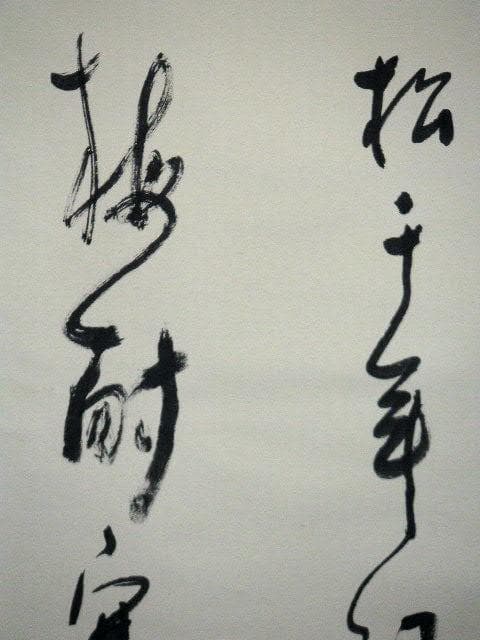 松千年
梅耐寒